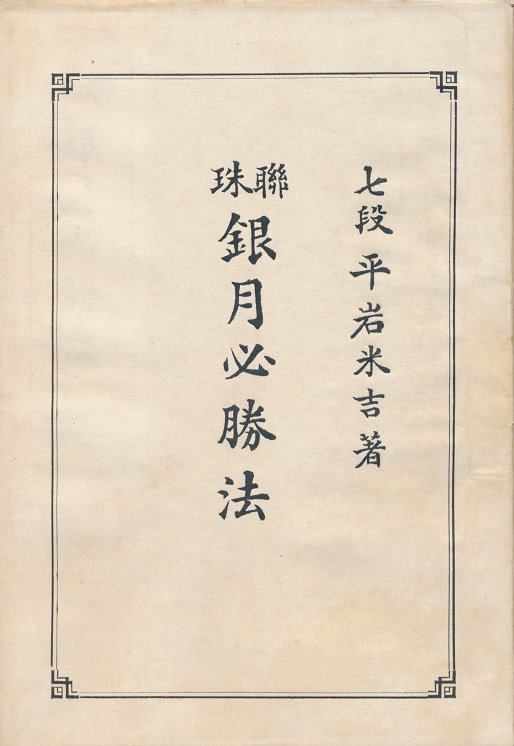 七段 平岩米吉著
聯珠 銀月必勝法